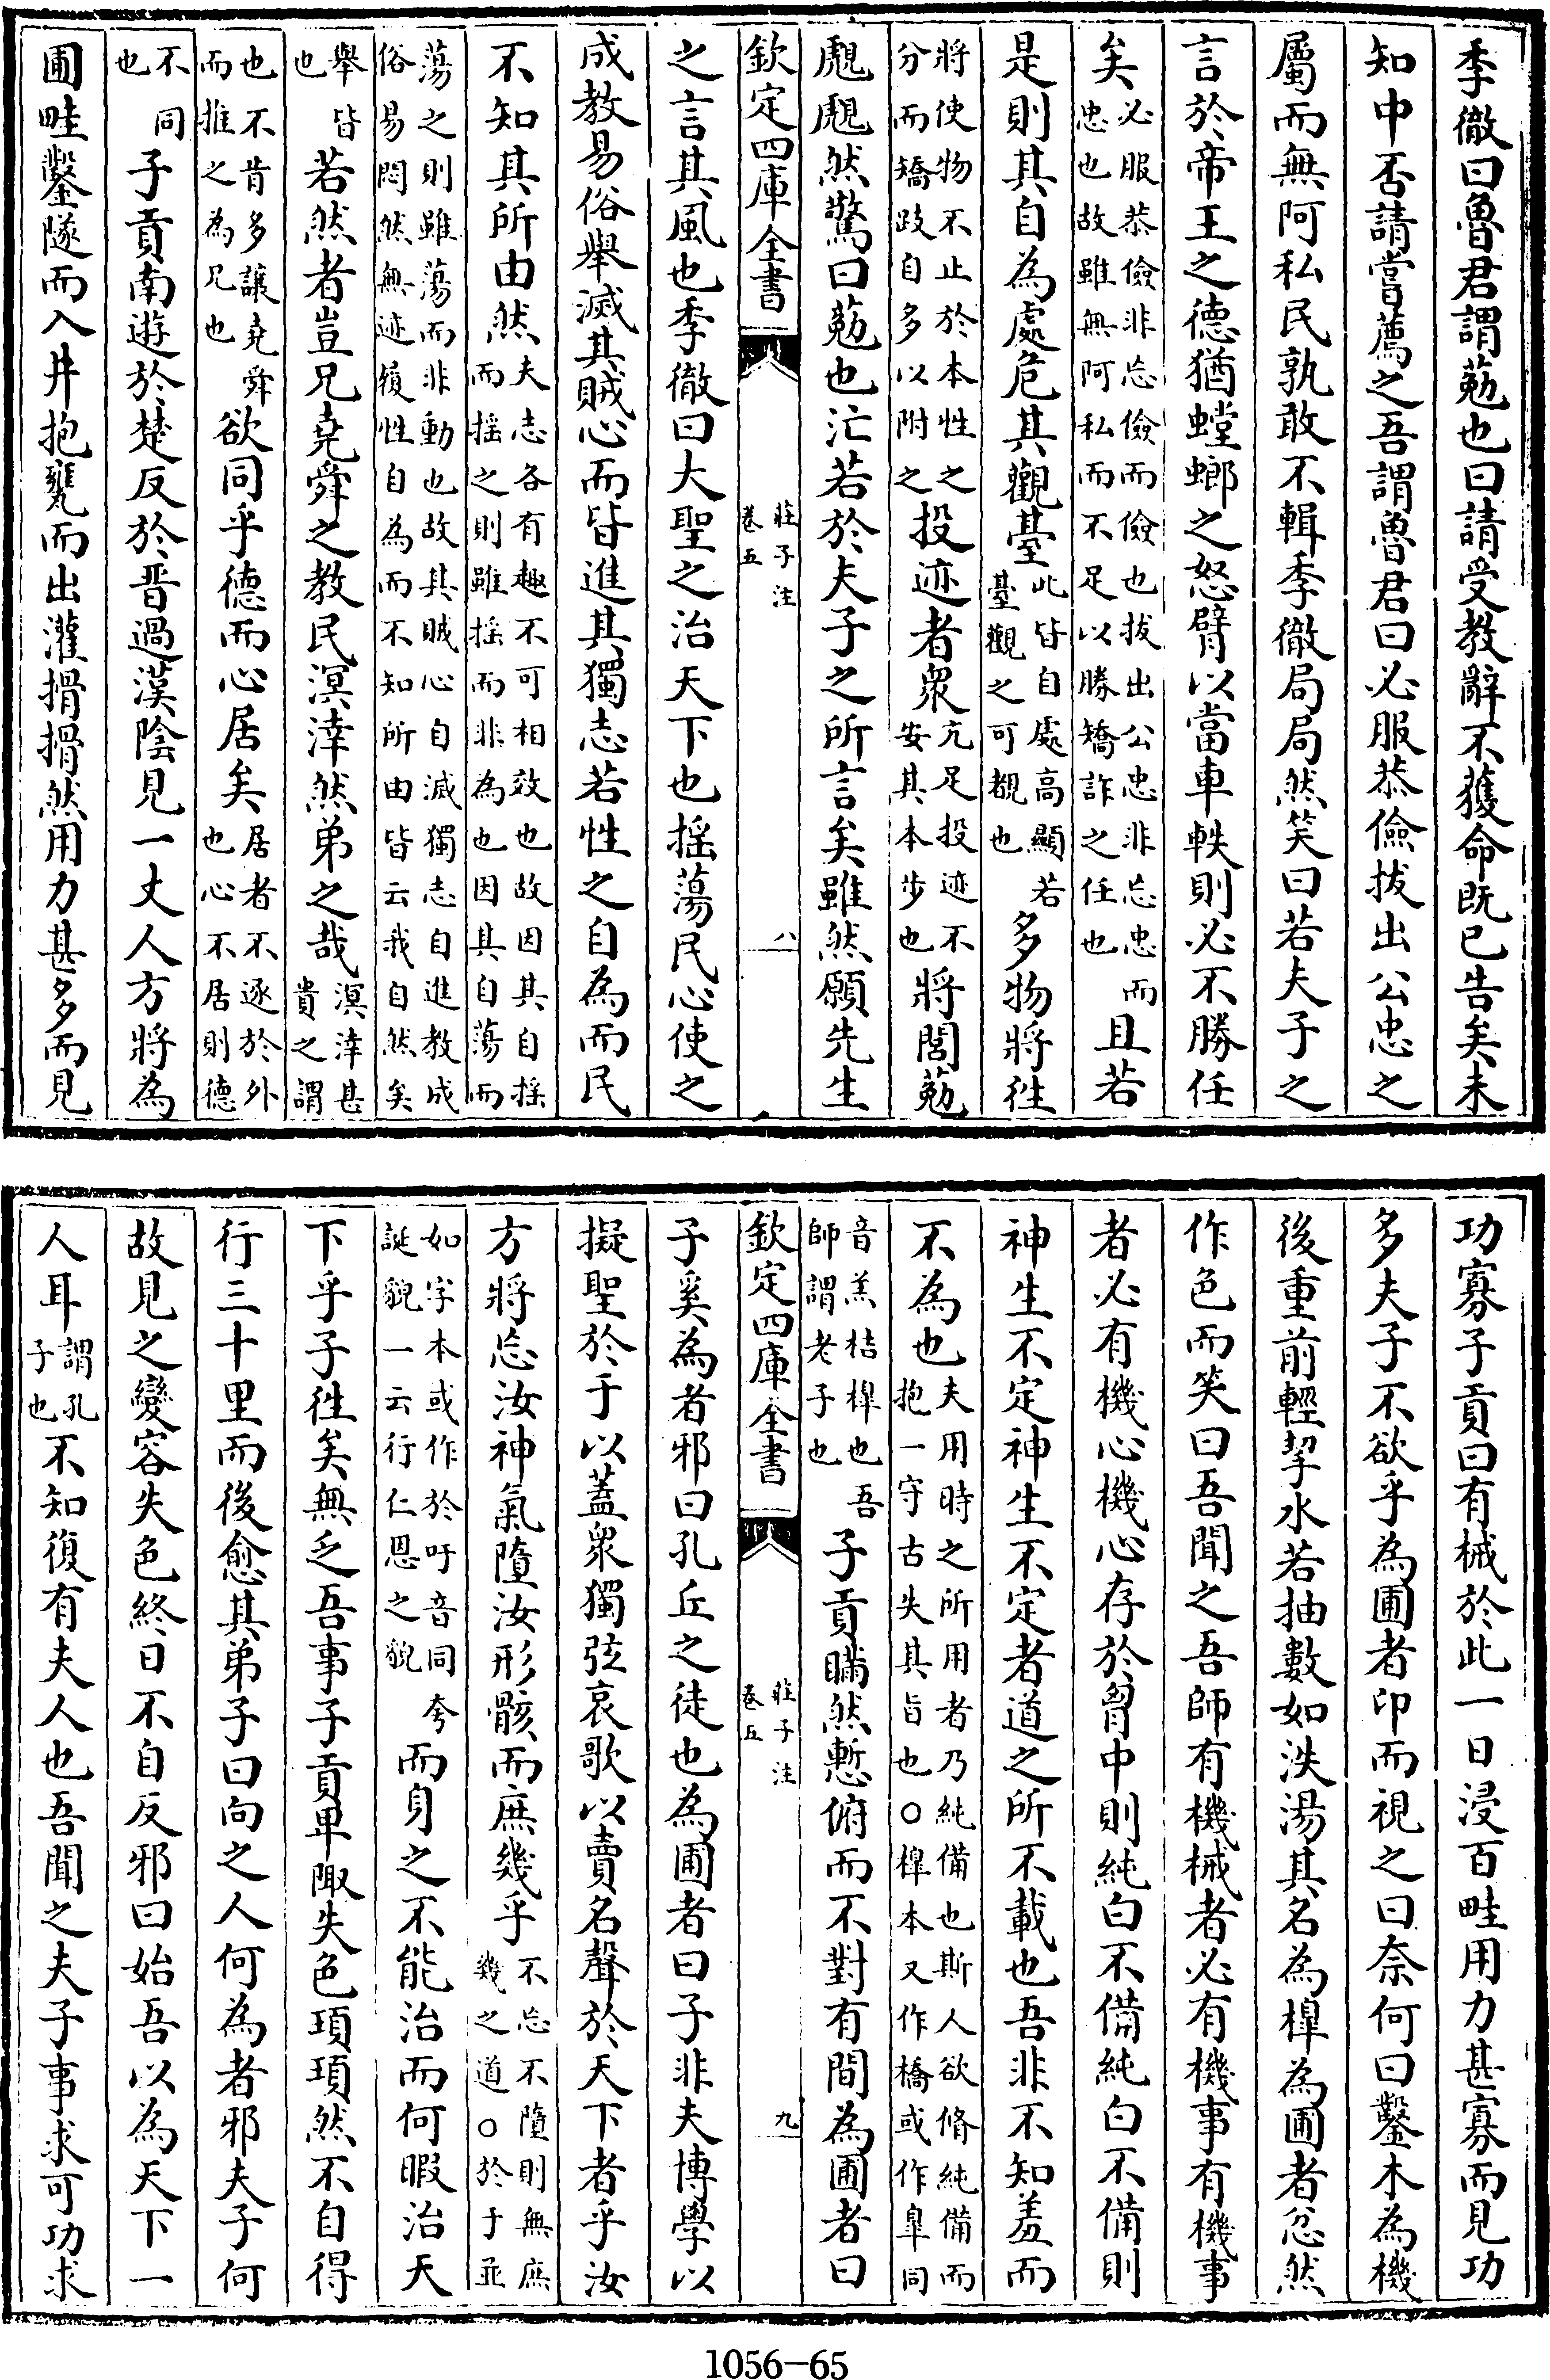 季徹曰魯君謂葂也曰請受教辭不獲命既已告矣未
知中否請嘗薦之吾謂魯君曰必服恭儉拔出公忠之
屬而無阿私民孰敢不輯季徹局局然笑曰若夫子之
言於帝王之德猶螳螂之怒臂以當車軼則必不勝任
矣必服恭儉非忘儉而儉也拔出公忠非忘忠而忠也故雖無阿私而不足以勝矯詐之任也且若
是則其自為處危其觀臺此皆自處高顯若臺觀之可覩也多物將徃
將使物不止於本性之分而矯跂自多以附之投迹者衆亢足投迹不安其本步也將閭葂
覤覤然驚曰葂也汒若於夫子之所言矣雖然願先生
欽定四庫全書 莊子注卷五 八
之言其風也季徹曰大聖之治天下也摇蕩民心使之
成教易俗舉滅其賊心而皆進其獨志若性之自為而民
不知其所由然夫志各有趣不可相效也故因其自摇而摇之則雖摇而非為也因其自蕩而
蕩之則雖蕩而非動也故其賊心自滅獨志自進教成俗易悶然無迹履性自為而不知所由皆云我自然矣
舉皆也若然者豈兄堯舜之教民溟涬然弟之哉溟涬甚貴之謂
也不肯多讓堯舜而推之為兄也欲同乎德而心居矣居者不逐於外也心不居則德
不同也子貢南遊於楚反於晋過漢陰見一丈人方將為
圃畦鑿隧而入井抱甕而出灌搰搰然用力甚多而見
功寡子貢曰有械於此一日浸百畦用力甚寡而見功
多夫子不欲乎為圃者卬而視之曰奈何曰鑿木為機
後重前輕挈水若抽數如泆湯其名為槔為圃者忿然
作色而笑曰吾聞之吾師有機械者必有機事有機事
者必有機心機心存於胷中則純白不備純白不備則
神生不定神生不定者道之所不載也吾非不知羞而
不為也夫用時之所用者乃純備也斯人欲脩純備而抱一守古失其旨也○槔本又作橋或作皐同
音羔桔槔也吾師謂老子也子貢瞞然慙俯而不對有間為圃者曰
欽定四庫全書 莊子注卷五 九
子奚為者邪曰孔丘之徒也為圃者曰子非夫博學以
擬聖於于以蓋衆獨弦哀歌以賣名聲於天下者乎汝
方將忘汝神氣墮汝形骸而庶幾乎不忘不墮則無庶幾之道○於于並
如字本或作於吁音同夸誕貌一云行仁恩之貌而身之不能治而何暇治天
下乎子徃矣無乏吾事子貢卑陬失色頊頊然不自得
行三十里而後愈其弟子曰向之人何為者邪夫子何
故見之變容失色終日不自反邪曰始吾以為天下一
人耳謂孔子也不知復有夫人也吾聞之夫子事求可功求
1056-65